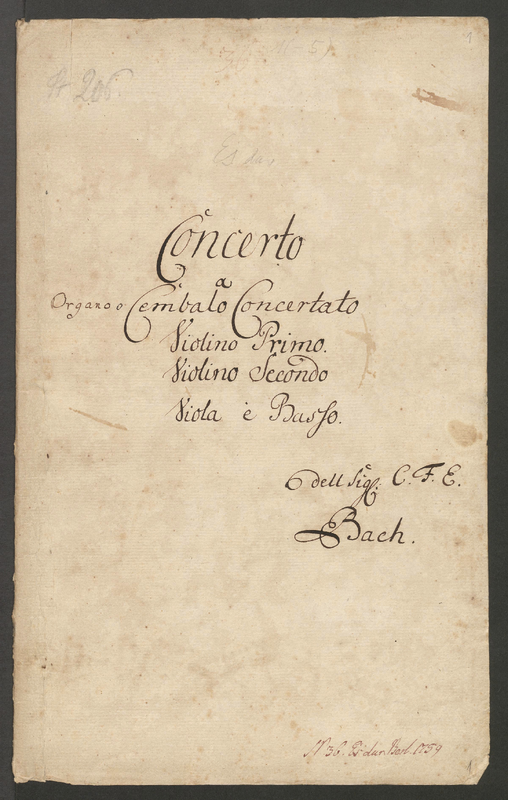 1
206.
Es dur
Concerto
a
Organo o Cembalo Concertato
Violino Primo.
Violino Secondo
Viola è Basso.
dell Sig. C. F. E.
Bach.
N 36. Es dur Berl. 1759